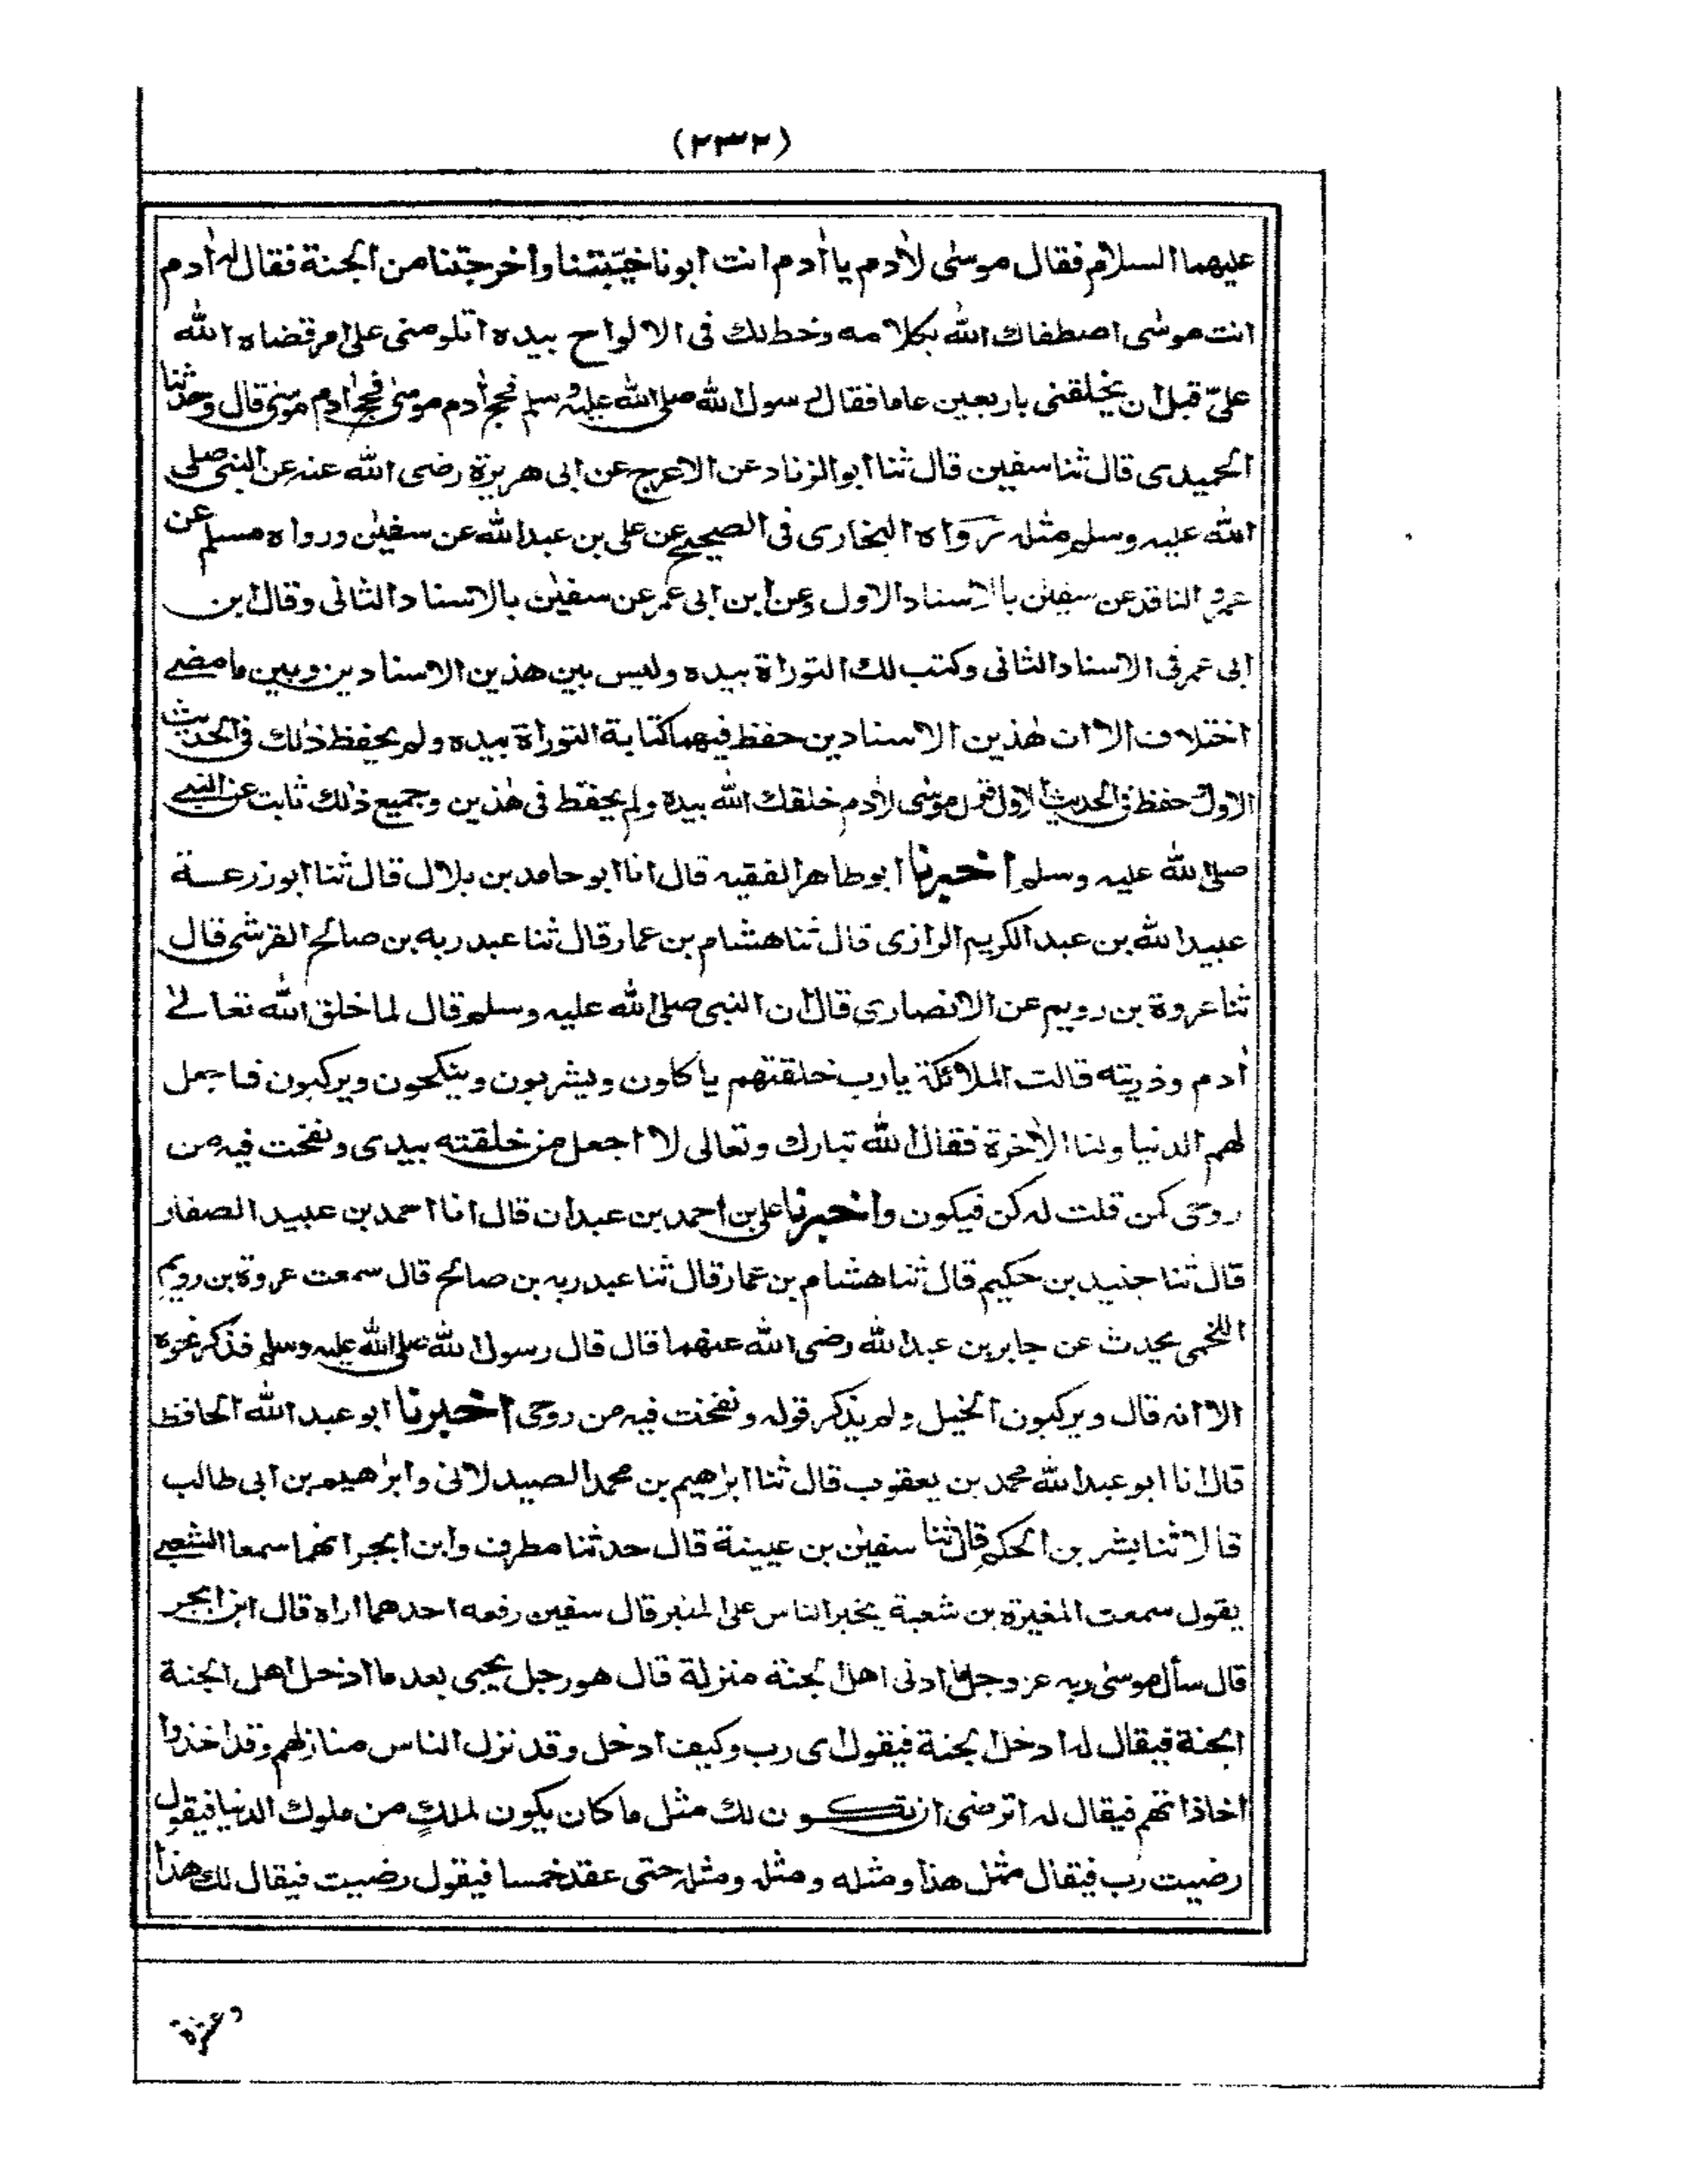 (٢٣٢)
عليهما السلام فقال موسٰى لاٰدم يا اٰدم انت ابونا خيّبتنا واخرجتنا من الجنة فقال له اٰدم
انت موسٰى اصطفاك الله بكلامه وخط لك فى الالواح بيده اتلومنى على امر قضاه الله
علىّ قبل ان يخلقنى باربعين عاما فقال رسول الله صلى الله عليه وسلم فحج اٰدم موسٰى فحج اٰدم موسٰى قال وحدثنا
الحميدى قال ثنا سفين قال ثنا ابو الزناد عن الاعرج عن ابى هريرة رضى الله عنه عن النبى صلى
الله عليه وسلم مثله رَوَاه البخارى فى الصحيح عن على بن عبد الله عن سفيٰن ورواه مسلم عن
عمرو الناقد عن سفيٰن بالاسناد الاول وعن ابن ابى عمر عن سفيٰن بالاسناد الثانى وقال ابن
ابى عمر فى الاسناد الثانى وكتب لك التوراة بيده وليس بين هذين الاسنادين وبين ما مضے
اختلاف الا ان هٰذين الاسنادين حفظ فيهما كتابة التوراة بيده ولم يحفظ ذٰلك فى الحديث
الاول وحفظ فى الحديث الاول قول موسٰى لاٰدم خلقك الله بيده ولم يحفظ فى هٰذين وجميع ذٰلك ثابت عن النبے
صلى الله عليه وسلم اخبرنا ابو طاهر الفقيه قال انا ابو حامد بن بلال قال ثنا ابو زرعة
عبيد الله بن عبد الكريم الرازى قال ثنا هشام بن عمار قال ثنا عبد ربه بن صالح القرشى قال
ثنا عروة بن رويم عن الانصارى قال ان النبى صلى الله عليه وسلم قال لما خلق الله تعالےٰ
اٰدم وذريته قالت الملائكة يا رب خلقتهم ياكلون ويشربون وينكحون ويركبون فاجعل
لهم الدنيا ولنا الاٰخرة فقال الله تبارك وتعالى لا اجعل من خلقته بيدى ونفخت فيه من
روحى كمن قلت له كن فيكون واخبرنا على بن احمد بن عبدان قال انا احمد بن عبيد الصفار
قال ثنا جنيد بن حكيم قال ثنا هشام بن عمار قال ثنا عبد ربه بن صالح قال سمعت عروة بن رويم
اللخمى يحدث عن جابر بن عبد الله رضى الله عنهما قال قال رسول الله صلى الله عليه وسلم فذكر نحوه
الا انه قال ويركبون الخيل ولم يذكر قوله ونفخت فيه من روحى اخبرنا ابو عبد الله الحافظ
قال انا ابو عبد الله محمد بن يعقوب قال ثنا ابراهيم بن محمد الصيدلانى وابراهيم بن ابى طالب
قالا ثنا بشر بن الحكم قال ثنا سفيٰن بن عيينة قال حدثنا مطرف وابن ابجر انهما سمعا الشعبے
يقول سمعت المغيرة بن شعبة يخبر الناس على المنبر قال سفين رفعه احدهما اراه قال ابن ابجر
قال سأل موسٰى ربه عز وجل ما ادنى اهل الجنة منزلة قال هو رجل يجيى بعد ما ادخل اهل الجنة
الجنة فيقال له ادخل الجنة فيقول اى رب وكيف ادخل وقد نزل الناس منازلهم وقد اخذوا
اخاذاتهم فيقال له اترضى ان تكون لك مثل ما كان يكون لملكٍ من ملوك الدنيا فيقول
رضيت رب فيقال مثل هذا ومثله ومثله ومثله حتى عقد خمسا فيقول رضيت فيقال لك هذا